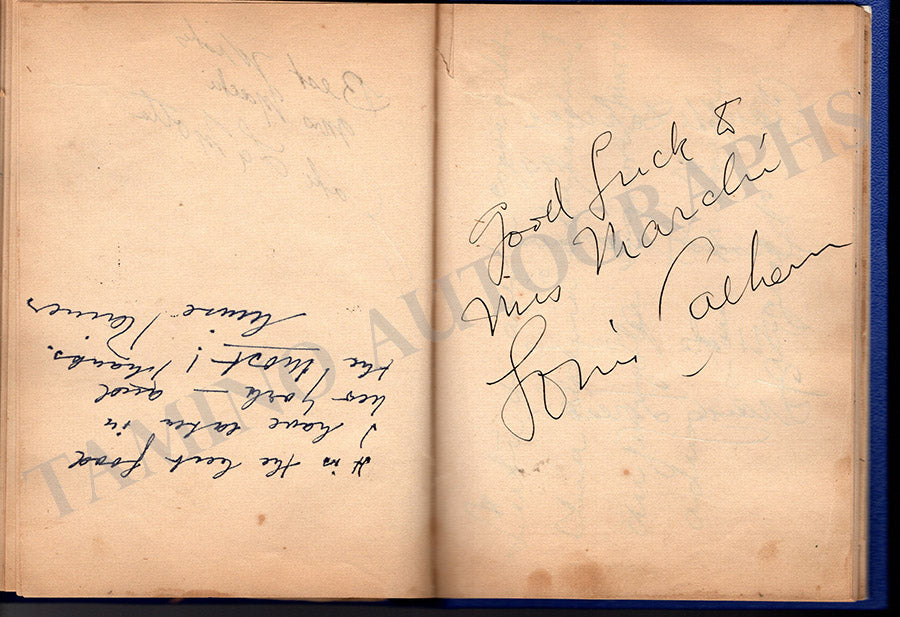 Best Wishes
It is the best food
I have eaten in
New York — and
the "Most"! Thanks.
Luise Rainer
Good Luck to
Miss Marchi
Louis Calhern
TAMINO AUTOGRAPHS